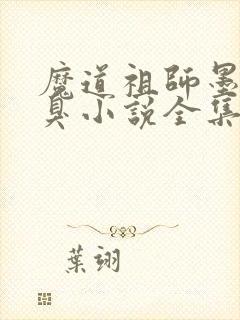 魔道祖師墨
臭小說全集
葉翊